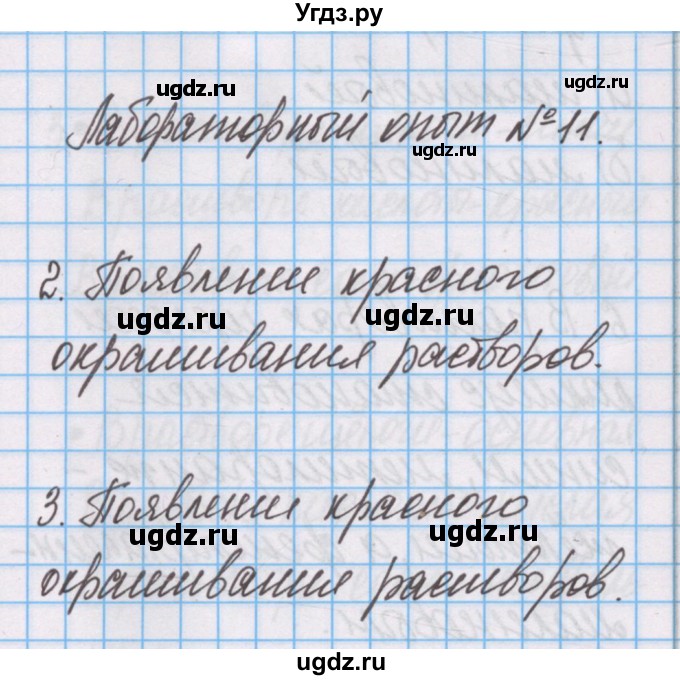 Угдз.ру
ugdz.ru
Лабораторный опыт №11.
ugdz.ru
2. Появление красного
ugdz.ru ugdz.ru
окрашивания растворов.
3. Появление красного
ugdz.ru ugdz.ru
окрашивания растворов.
ugdz.ru